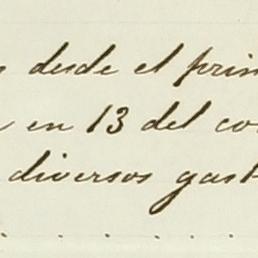 desde el prin
en 13 del co
diversos gast